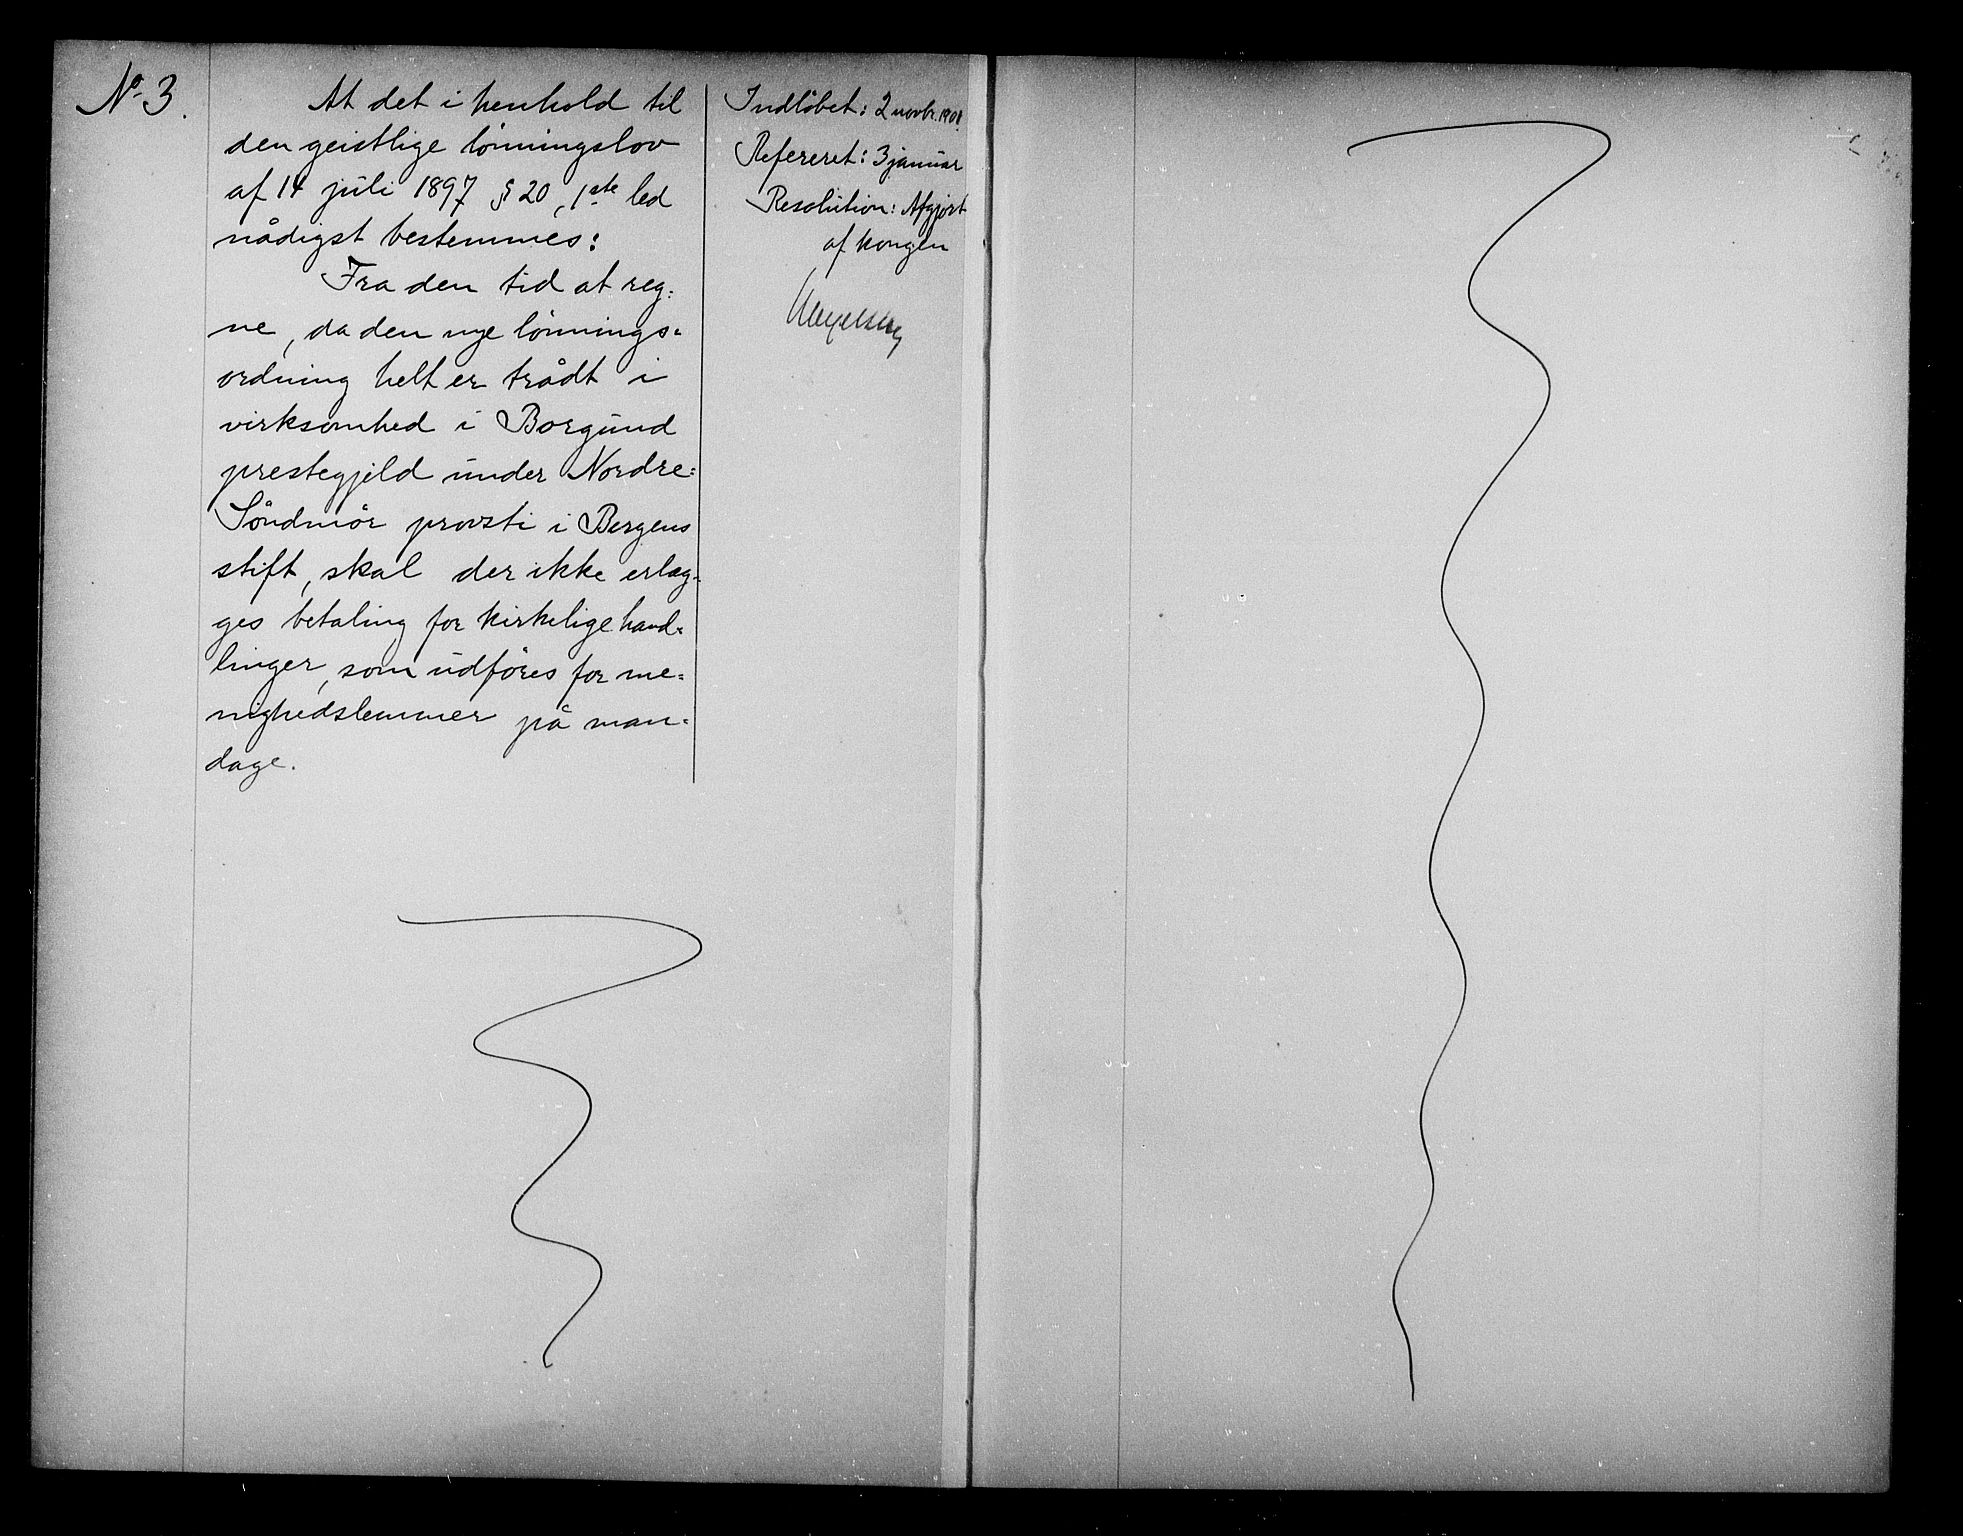 No 3.
At det i henhold til
den geistlige lønningslov
af 14 juli 1897 § 20, 1ste led
nådigst bestemmes:
Fra den tid at reg=
ne, da den nye lønnings=
ordning helt er trådt i
virksomhed i Borgund
prestegjeld under Nordre=
Søndmør provsti i Bergens
stift, skal der ikke erlæg=
ges betaling for kirkelige hand=
linger, som udføres for me=
nighedslemmer på man=
dage.
Indløbet: 2 novbr.
Refereret: 3 januar
Resolution: Afgjort
af kongen